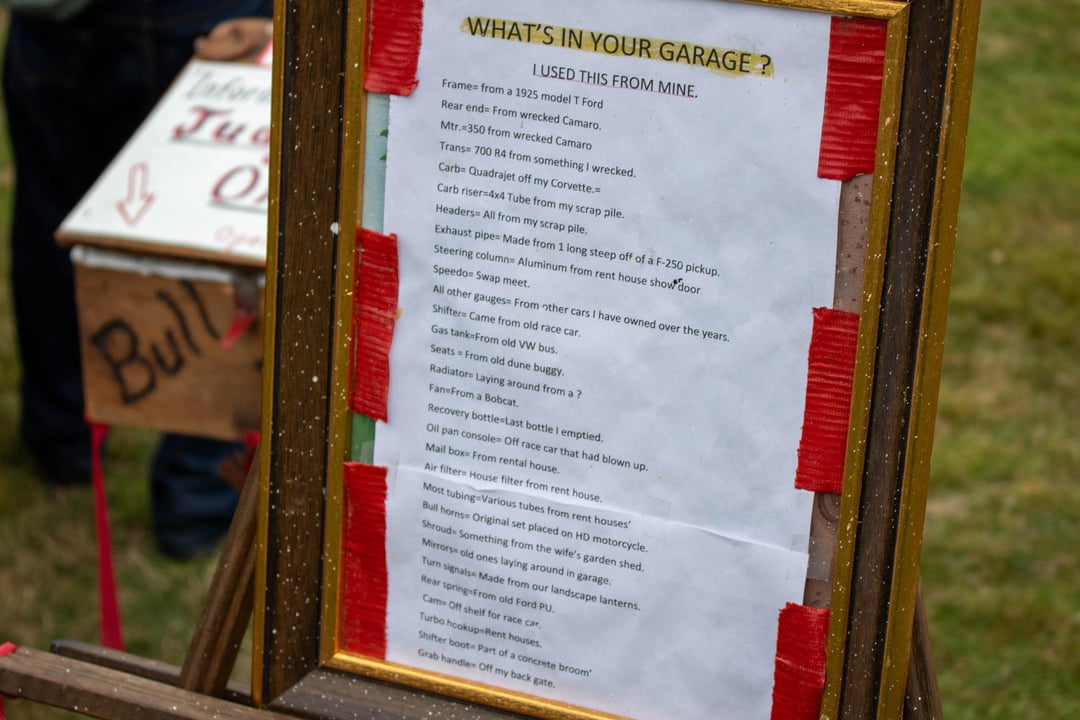 WHAT'S IN YOUR GARAGE ?
I USED THIS FROM MINE.
Frame= from a 1925 model T Ford
Rear end= From wrecked Camaro.
Mtr.=350 from wrecked Camaro
Trans= 700 R4 from something I wrecked.
Carb= Quadrajet off my Corvette.=
Carb riser=4x4 Tube from my scrap pile.
Headers= All from my scrap pile.
Exhaust pipe= Made from 1 long steep off of a F-250 pickup.
Steering column= Aluminum from rent house show door.
Speedo= Swap meet.
All other gauges= From other cars I have owned over the years.
Shifter= Came from old race car.
Gas tank=From old VW bus.
Seats = From old dune buggy.
Radiator= Laying around from a ?
Fan=From a Bobcat.
Recovery bottle=Last bottle I emptied.
Oil pan console= Off race car that had blown up.
Mail box= From rental house.
Air filter= House filter from rent house.
Most tubing=Various tubes from rent houses'
Bull horns= Original set placed on HD motorcycle.
Shroud= Something from the wife's garden shed.
Mirrors= old ones laying around in garage.
Turn signals= Made from our landscape lanterns.
Rear spring=From old Ford PU.
Cam= Off shelf for race car.
Turbo hookup=Rent houses.
Shifter boot= Part of a concrete broom'
Grab handle= Off my back gate.
Bull